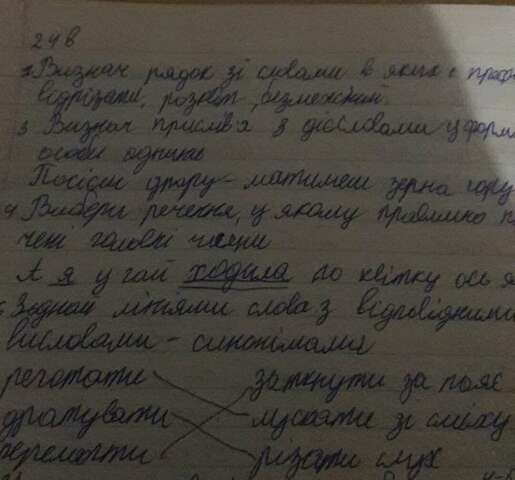 24 в
Визнач рядок зі словами в яких є преф
відрізати, розквіт, безмежний.
3 Визнач прислів'я з дієсловами у форм
особи однини
Посієш вчору - матимеш зерна гору
4 Вибери речення, у якому правильно п
чені головні члени
А я у гай ходила по квітку ось я
З'єднай лініями слова з відповідними
висловами - синонімами
реготати заткнути за пояс
дратувати луснати зі сміху
перемогти різати слух